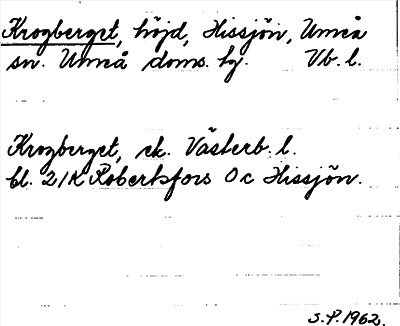 Krogberget, höjd, Hissjön, Umeå
sn. Umeå doms. hg. Vb. l.
Krogberget, ek. Västerb. l.
bl. 21K Robertsfors 0c Hissjön.
S.P. 1962.